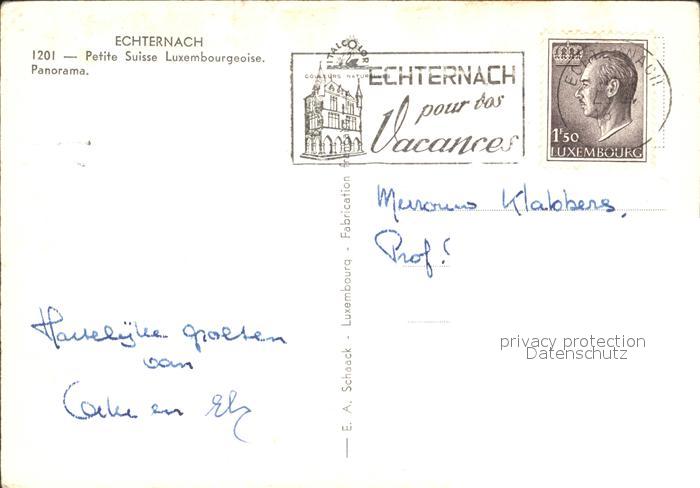 ECHTERNACH
1201 — Petite Suisse Luxembourgeoise.
Panorama.
ITALCOLOR
COULEURS NATURELLES
ECHTERNACH
pour vos
Vacances
ECHTERNACH
1'50
LUXEMBOURG
Klabbers,
Prof!
Hartelijke groeten
van
en Els
— E. A. Schaack - Luxembourg - Fabrication
privacy protection
Datenschutz